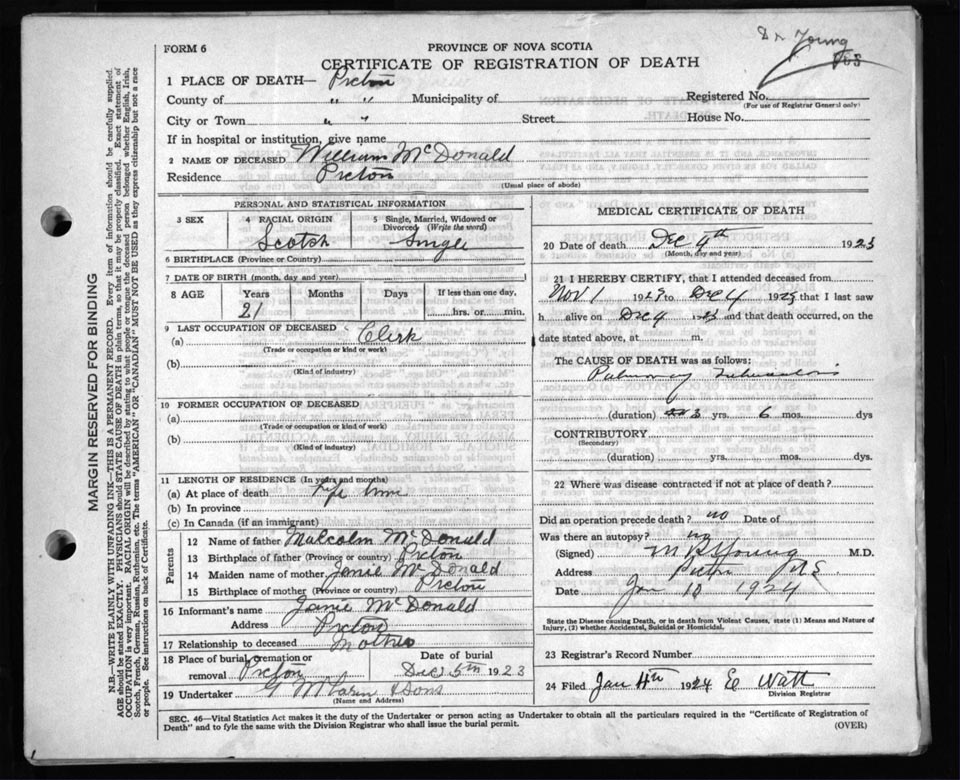 Dr Young
FORM 6
PROVINCE OF NOVA SCOTIA
CERTIFICATE OF REGISTRATION OF DEATH
1 PLACE OF DEATH— Pictou
County of " " Municipality of Registered No.
(For use of Registrar General only)
City or Town " " Street House No.
If in hospital or institution, give name
2 NAME OF DECEASED William McDonald
Residence Pictou
(Usual place of abode)
PERSONAL AND STATISTICAL INFORMATION
3 SEX 4 RACIAL ORIGIN 5 Single, Married, Widowed or Divorced (Write the word)
Scotch Single
6 BIRTHPLACE (Province or Country)
7 DATE OF BIRTH (month, day and year)
8 AGE Years Months Days If less than one day,
21 hrs. or min.
9 LAST OCCUPATION OF DECEASED
(a) Clerk
(Trade or occupation or kind or work)
(b)
(Kind of industry)
10 FORMER OCCUPATION OF DECEASED
(a)
(Trade or occupation or kind of work)
(b)
(Kind of industry)
11 LENGTH OF RESIDENCE (In years and months)
(a) At place of death Life time
(b) In province
(c) In Canada (if an immigrant)
Parents
12 Name of father Malcolm McDonald
13 Birthplace of father (Province or country) Pictou
14 Maiden name of mother Janie McDonald
15 Birthplace of mother (Province or country) Pictou
16 Informant's name Janie McDonald
Address Pictou
17 Relationship to deceased Mother
18 Place of burial, cremation or removal Pictou Date of burial Dec 5th 1923
19 Undertaker & Sons
(Name and Address)
MEDICAL CERTIFICATE OF DEATH
20 Date of death Dec 4th 1923
(Month, day and year)
21 I HEREBY CERTIFY, that I attended deceased from
Nov 1 192 to Dec 4 192 that I last saw
h alive on Dec 4 and that death occurred, on
date stated above, at m,
The CAUSE OF DEATH was as follows:
Pulmonary Tuberculosis
(duration) 3 yrs. 6 mos. dys
CONTRIBUTORY
(Secondary)
(duration) yrs. mos. dys.
22 Where was disease contracted if not at place of death?
Did an operation precede death? no Date of
Was there an autopsy? no
(Signed) Young M.D.
Address Pictou N.S
Date Jan 10 1924
State the Disease causing Death, or in death from Violent Causes, state (1) Means and Nature of Injury, (2) whether Accidental, Suicidal or Homicidal.
23 Registrar's Record Number
24 Filed Jan 4th 1924 E Watt
Division Registrar
SEC. 46—Vital Statistics Act makes it the duty of the Undertaker or person acting as Undertaker to obtain all the particulars required in the "Certificate of Registration of
Death" and to fyle the same with the Division Registrar who shall issue the burial permit. (OVER)
MARGIN RESERVED FOR BINDING
N.B.—WRITE PLAINLY WITH UNFADING INK—THIS IS A PERMANENT RECORD. Every item of information should be carefully supplied.
AGE should be stated EXACTLY. PHYSICIANS should STATE CAUSE OF DEATH in plain terms, so that it may be properly classified. Exact statement of
OCCUPATION is very important. RACIAL ORIGIN will be described by stating to what people or tongue the deceased person belonged whether English, Irish,
Scotch, French, German, Russian, Ruthenian, etc. The terms "AMERICAN" OR "CANADIAN" MUST NOT BE USED as they express citizenship but not a race
or people. See instructions on back of Certificate.